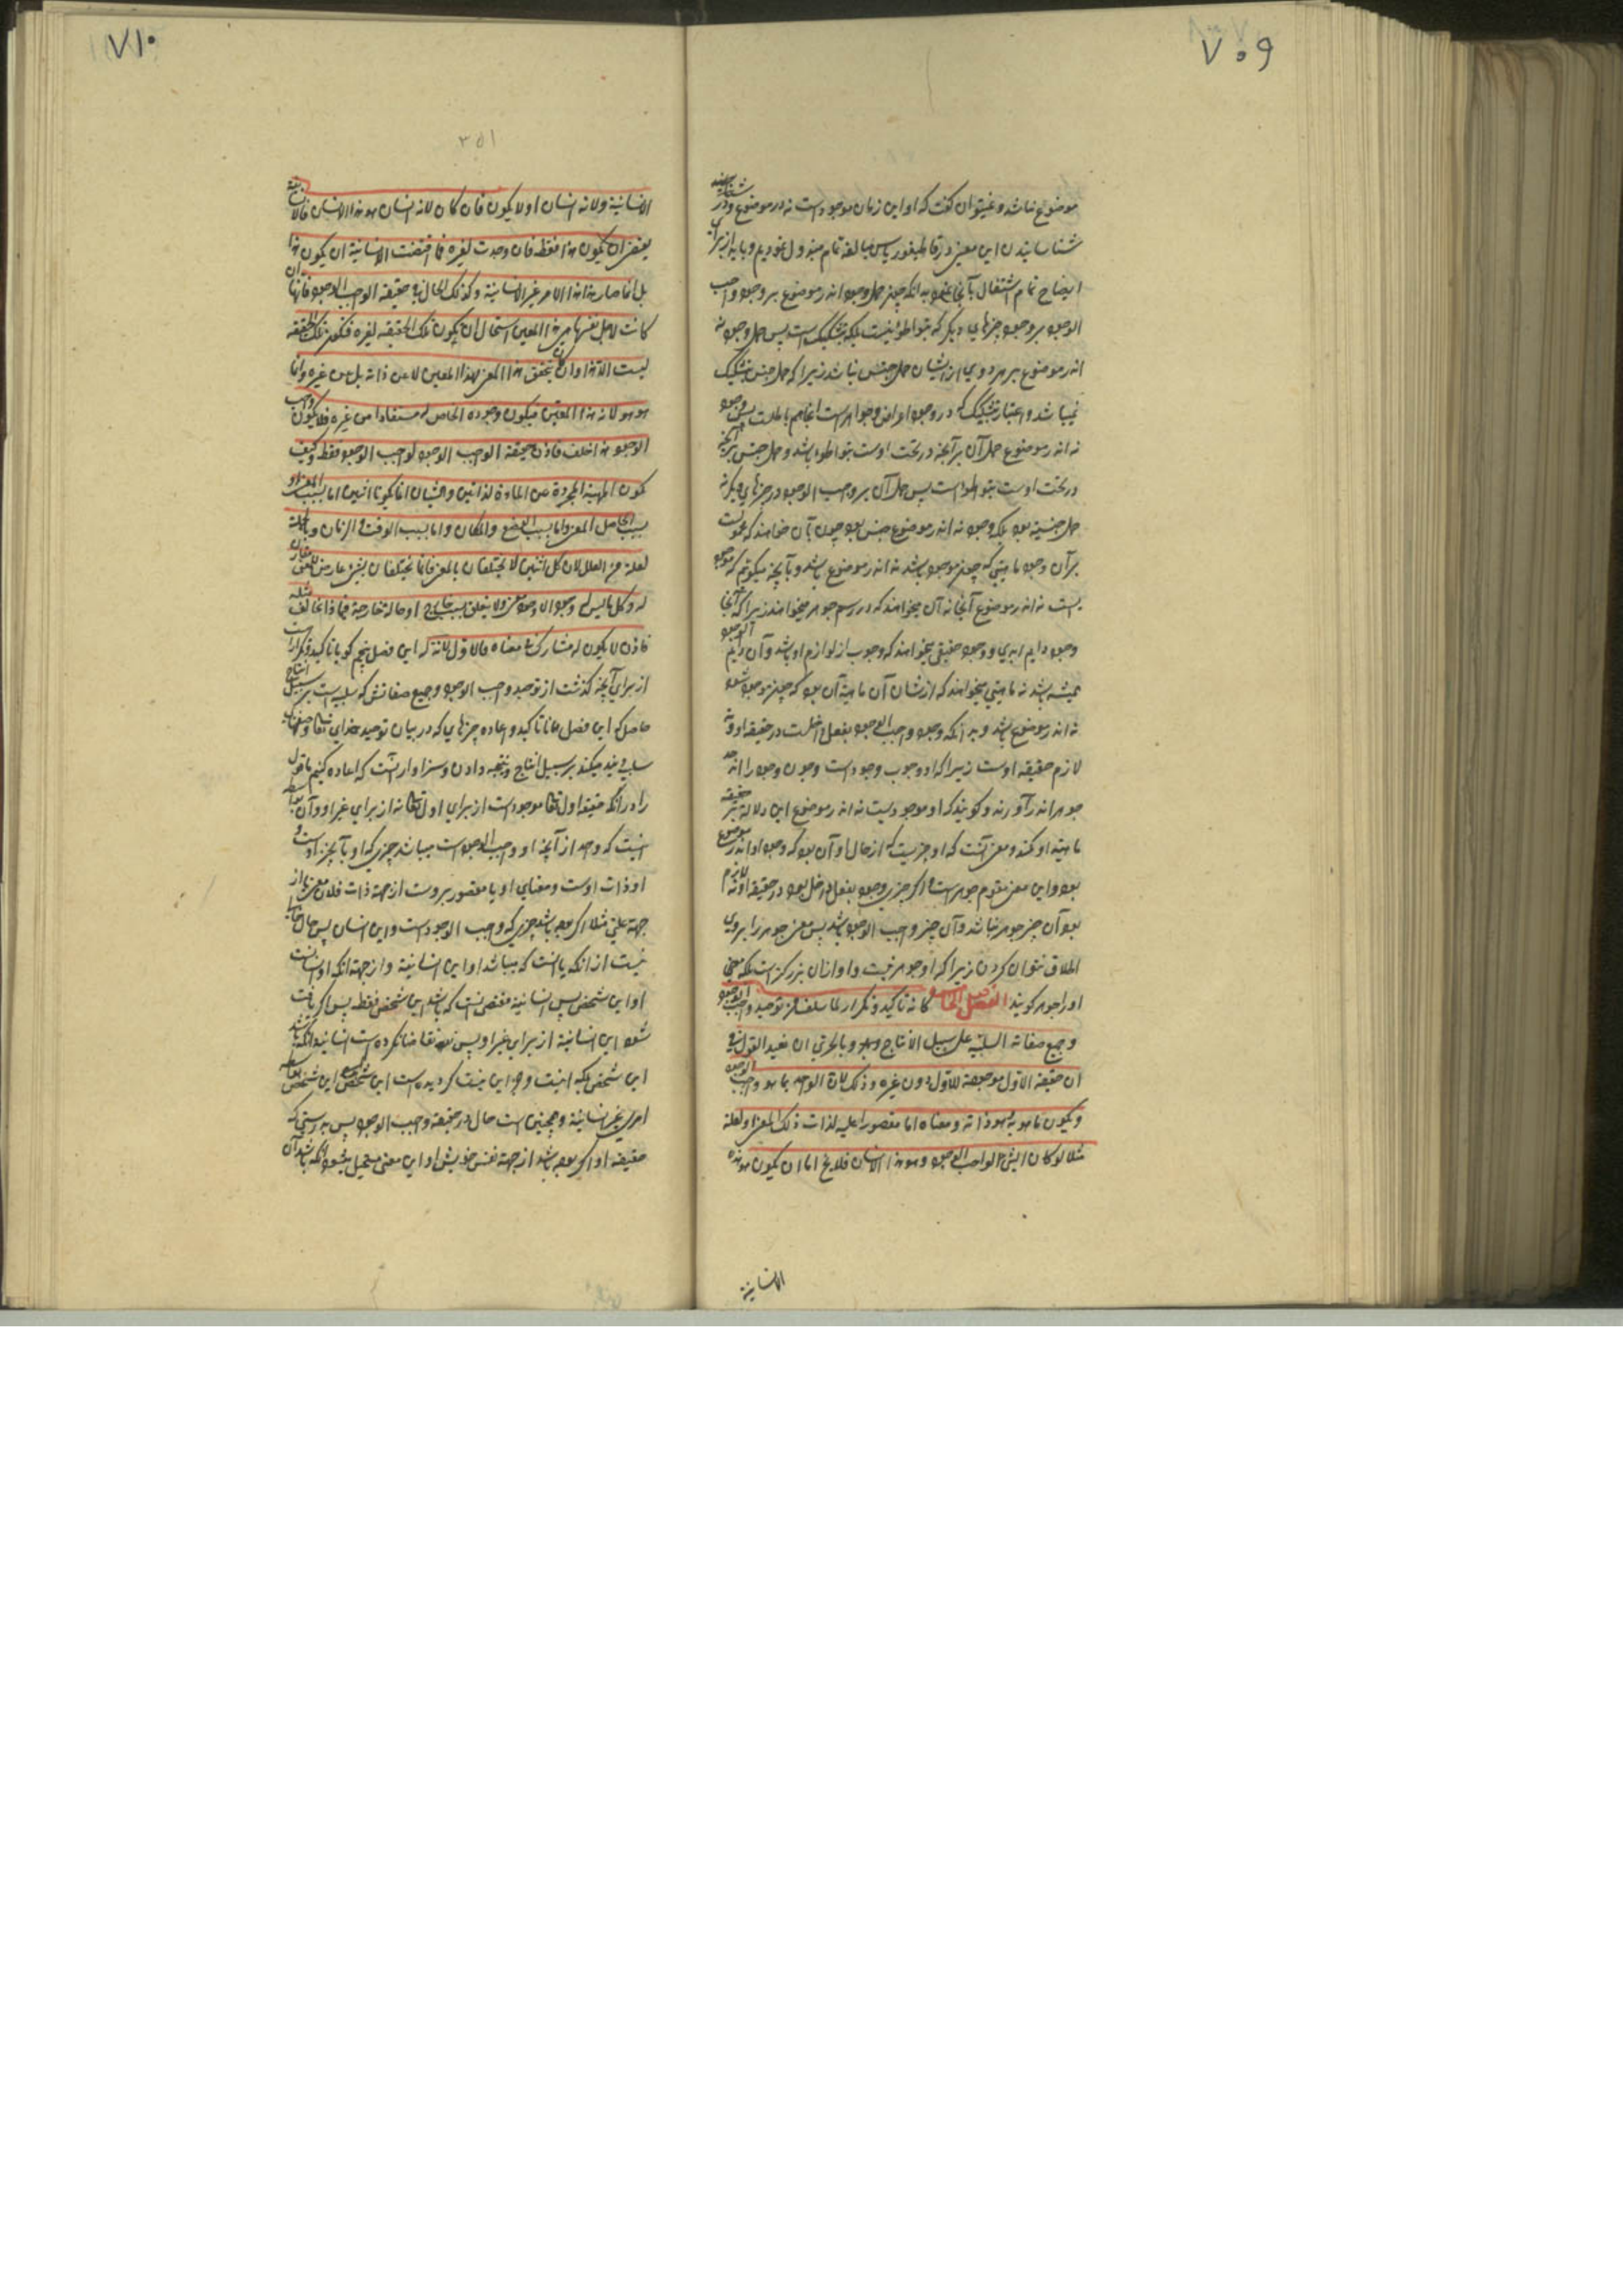 ٧٠٩
موضوع نباشد و نمیتوان گفت که او این زمان موجود است نه در موضوع و در
شناسانیدن این معنی در قاطیغوریاس مبالغه تمام مبذول نمودیم و باید از برای
ایضاح تمام اشتغال بآنجا نمود بدانکه چون حمل وجود نه در موضوع بر وجود واجب
الوجود بر وجود چیزهای دیگر که بتواطؤ نیست بلکه بتشکیک است پس حمل وجود نه
اندر موضوع بر هر دوی از ایشان حمل جنس نباشد زیرا که حمل جنس بتشکیک
نمیباشد و اعتبار تشکیک که در وجود اعراض و جواهر است اینجا هم باطلست پس وجود
نه اندر موضوع حمل آن بر آنچه در تحت اوست بتواطؤ باشد و حمل جنس بر آنچه
در تحت اوست بتواطؤ است پس حمل آن بر واجب الوجود و در چیزهای دیگر نه
حمل جنسیه بود بلکه وجود نه اندر موضوع جنس بود چون بآن خواهند که محمولست
بر آن وجود ماهیتی که چون موجود باشد نه اندر موضوع باشد و بآنچه میگوئیم که موجود
یست نه اندر موضوع آنجا نه آن میخواهند که در رسم جوهر میخواهند زیرا که آنجا
وجود دایم ابدی و وجود حقیقی میخواهند که وجوب از لوازم او باشد و آن دایم الوجود
همیشه باشد نه ماهیتی میخواهند که از شان آن ماهیة آن بود که چون موجود شود
نه اندر موضوع باشد و بدانکه وجود واجب الوجود بفعل داخلست در حقیقة او و نه
لازم حقیقة اوست زیرا که او وجوب وجود است و چون وجود را اندر حد
جوهر اندر آورند و گویند که او موجودیست نه اندر موضوع این دلالة بر حقیقة
ماهیة او کند و معنی آنست که او چیزیست که از حال او آن بود که وجود او نه اندر موضوع
بود و این معنی مقوم جوهر است و اگر چیزی وجود بفعل داخل بود در حقیقة او و نه لازم
بود آن چیز جوهر نباشد و آن چیز واجب الوجود باشد پس معنی جوهر را بر وی
اطلاق نتوان کردن زیرا که او جوهر نیست و او از آن بزرگتر است که معنی
او را جوهر گویند الفصل الخامس کانه تاکید و تکرار لما سلف من توحید واجب الوجود
و جمیع صفاته السلبیة علی سبیل الانتاج و بالحری ان نعید القول فی
ان حقیقة الاول موجودة للاول دون غیره و ذلک لان الواحد بما هو واجب الوجود
و یکون ما هو به هو و ذاته و معناه اما مقصورا علیه لذات ذلک المعنی او لعلة
مثلا لو کان الشیء الواجب الوجود هو هذا الانسان فلا یخ اما ان یکون هو هذا
الانسانیة
٧١٠
٣٥١
الانسانیة و لانه انسان او لا یکون فان کان لانه انسان هو هذا الانسان فالانسانیة
یقتضی ان یکون هذا فقط فان وجدت لغیره فما اقتضت الانسانیة ان یکون هذا
بل انما صار هذا هذا لامر غیر الانسانیة و کذلک الحال فی حقیقة الواجب الوجود فانها ان
کانت لاجل نفسها هی هذا المعین استحال ان یکون تلک الحقیقه لغیره فتکون تلک الحقیقه
لیست الا هذا و ان کان تحقق هذا المعنی لهذا المعین لا عن ذاته بل عن غیره و انما
هو هو لانه هذا المعین فیکون وجوده الخاص له مستفادا من غیره فلا یکون واجب
الوجود هذا خلف فاذن حقیقة الواجب الوجود لواجب الوجود فقط و کیف
یکون المهیة المجردة عن المادة لذاتین و الشیئان انما یکونا اثنین اما بسبب المعنی او
بسبب الحامل للمعنی و اما بسبب الوضع و المکان و اما بسبب الوقت و الزمان و بالجملة
لعلة من العلل لان کل اثنین لا یختلفان بالمعنی فانما یختلفان بشیء عارض للمعنی مقارن
له و کل ما لیس له وجود الا وجود معنی و لا یتعلق بسبب خارج او حالة خارجة فیما ذا یخالف مثله
فاذن لا یکون له مشارک فی معناه فالاول لا ند له این فصل پنجم گویا تاکید و تکرار است
از برای آنچه گذشت از توحید واجب الوجود و جمیع صفاتش که سلبی است بر سبیل انتاج
حاصل که این فصل همانا تاکید و اعاده چیزهای که در بیان توحید خدای تعالی و صفات
سلبی فائده میکند بر سبیل انتاج و نتیجه دادن و سزاوار آنست که اعاده کنیم ما قول
را در آنکه حقیقة اول تعالی موجود است از برای اول تعالی نه از برای غیر او و آن بواسطه
آنیست که واحد از آنچه او واجب الوجود است میباشد چیزی که او بآنچیز اوست و
او ذات اوست و معنای او یا مقصور بر وست از جهة ذات فلان معنی یا از
جهة علتی مثلا اگر بوده باشد چیزی که واجب الوجود است و این انسان پس حال خالی
نیست از آنکه یا آنست که میباشد او این انسانیة و از جهة آنکه او انسانست
او این شخص پس انسانیة مقتضی آنست که باشد این شخص فقط پس اگر یافت
شود این انسانیة از برای غیر او پس نه تقاضا نکرده است انسانیة آنکه باشد
این شخص بلکه اینست و جز این نیست گردیده است این شخص این شخص بواسطه
امری غیر انسانیة و همچنین است حال در حقیقة واجب الوجود پس بدرستی که
حقیقة او اگر بوده باشد از جهة نفس خویش او این معنی مستحیل میشود آنکه باشد آن